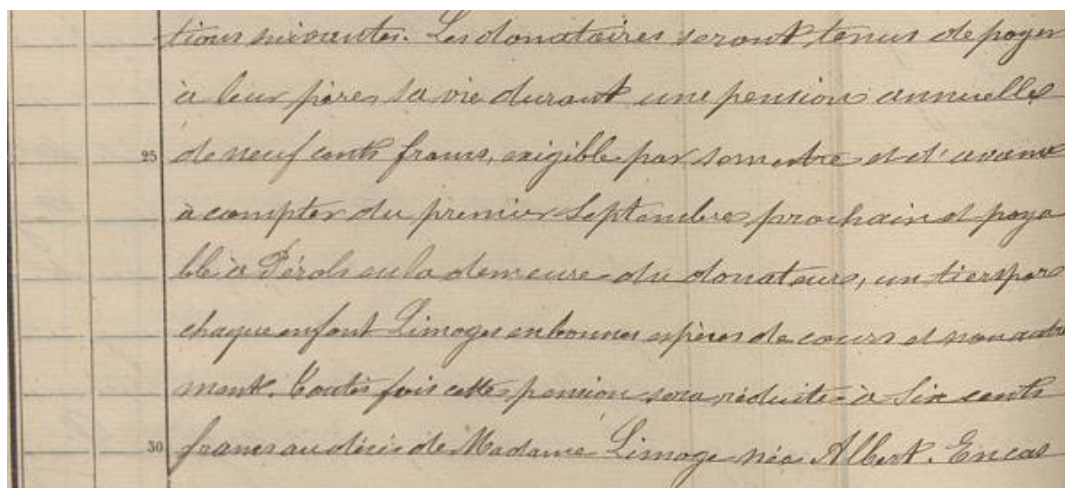 tions suivantes. Les donataires seront tenus de payer
à leur père, sa vie durant une pension annuelle
25 de neuf cents francs, exigible par semestre et d'avance
à compter du premier Septembre prochain et paya
ble à Pérols en la demeure du donateur, un tiers par
chaque enfant Limoges en bonnes espèces de cours et non autre
ment. Toutes fois cette pension sera réduite à Six cents
30 francs au décès de Madame Limoge née Albert. En cas